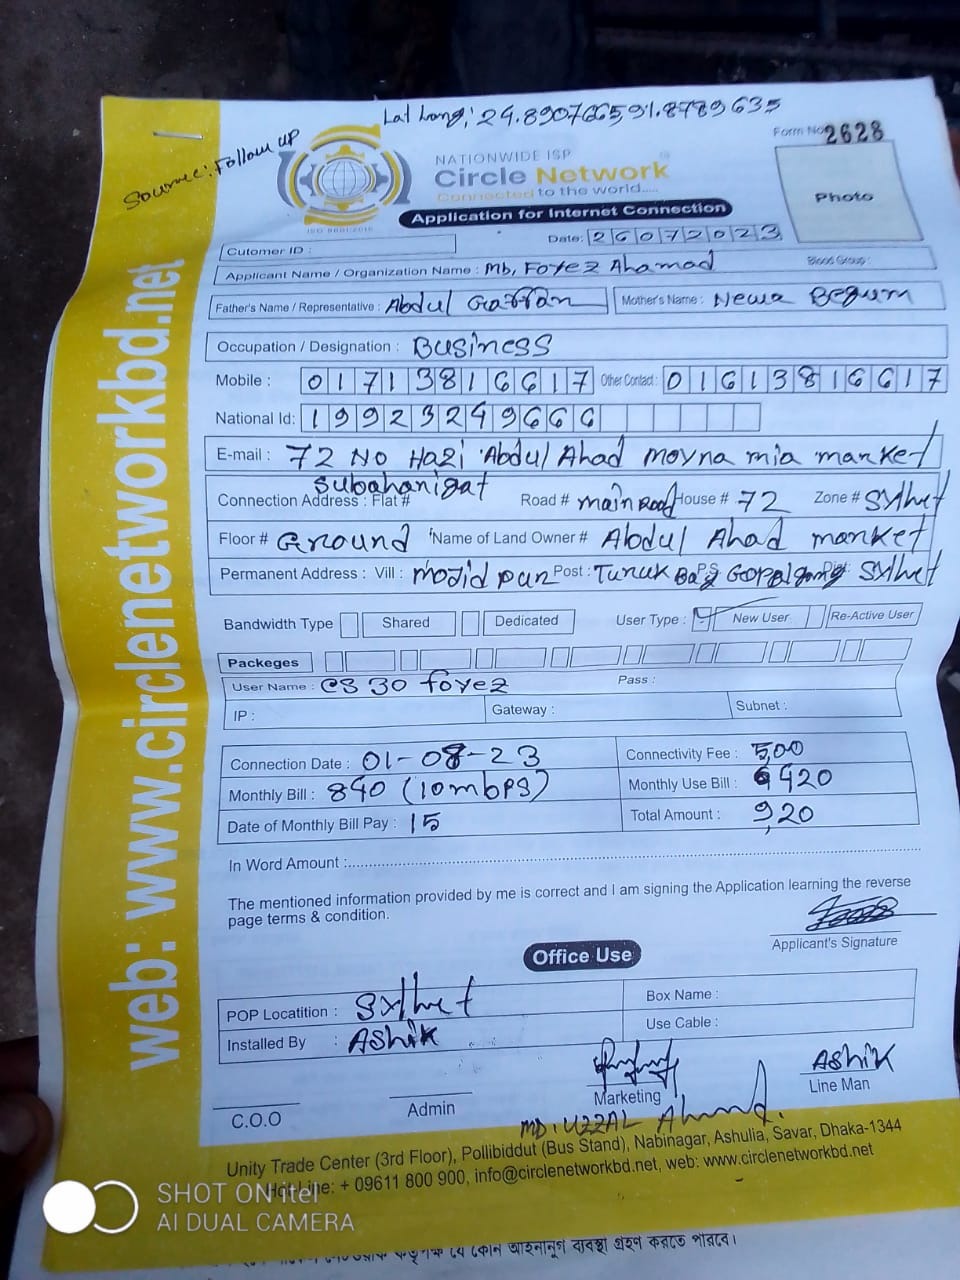 Lat Long: 24.8907665 91.8789635
Source: Follow up
Form No 2628
NATIONWIDE ISP
Circle Network
Connected to the world.....
ISO 9001:2015
Photo
Application for Internet Connection
Date: 26072023
Cutomer ID :
Blood Group :
Applicant Name / Organization Name : Mb, Foyez Ahamad
Father's Name / Representative : Abdul Mother's Name : Newa Begum
Occupation / Designation : Business
Mobile : 01713816617 Other Contact : 01613816617
National Id: 19923249666
E-mail : 72 No Hazi Abdul Ahad moyna mia market
Subahanigat
Connection Address : Flat # Road # main Road House # 72 Zone # Sylhet
Floor # Ground Name of Land Owner # Abdul Ahad market
Permanent Address : Vill : mozid pur Post : Turuk Bag PS Gopalgong Dist: Sylhet
Bandwidth Type Shared Dedicated User Type : New User Re-Active User
Packeges
User Name : cs 30 foyez Pass :
IP : Gateway : Subnet :
Connection Date : 01-08-23 Connectivity Fee : 500
Monthly Bill : 840 (10mbps) Monthly Use Bill : 420
Date of Monthly Bill Pay : 15 Total Amount : 920
In Word Amount :
The mentioned information provided by me is correct and I am signing the Application learning the reverse
page terms & condition.
Applicant's Signature
Office Use
POP Locatition : Sylhet Box Name :
Installed By : Ashik Use Cable :
Ashik
C.O.O Admin Marketing Line Man
MD. UZZAL Ahmed.
Unity Trade Center (3rd Floor), Pollibiddut (Bus Stand), Nabinagar, Ashulia, Savar, Dhaka-1344
Hot Line: + 09611 800 900, info@circlenetworkbd.net, web: www.circlenetworkbd.net
web: www.circlenetworkbd.net
SHOT ON itel
AI DUAL CAMERA
যে কোন আইনানুগ ব্যবস্থা গ্রহণ করতে পারবে।